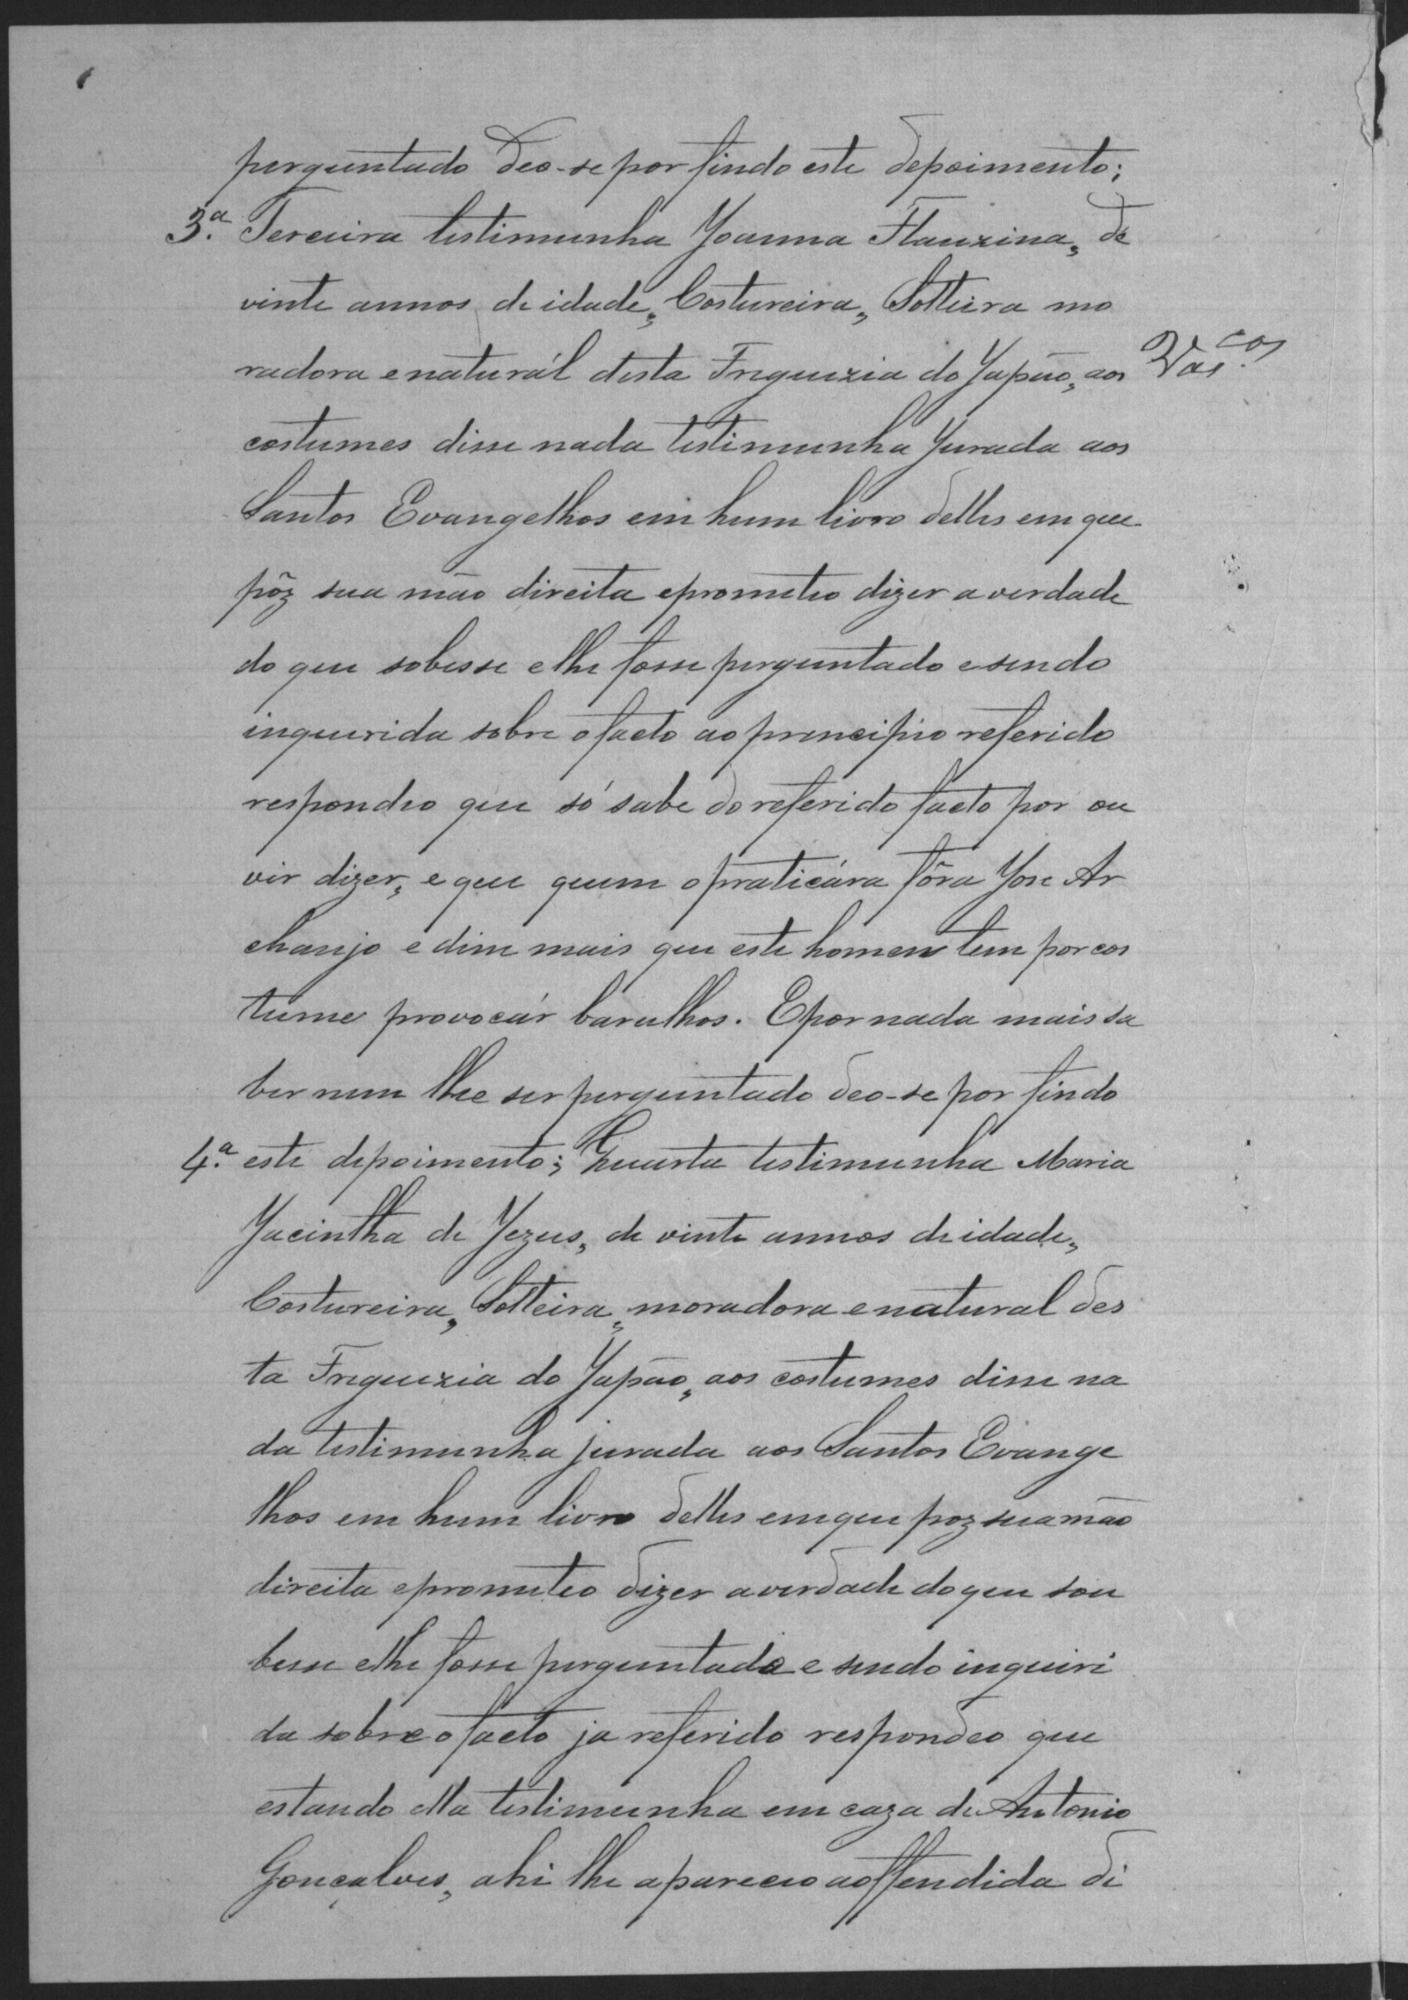 perguntado deo-se por findo este depoimento;
3.ª Terceira testimunha Joanna Flauzina, de
vinte annos de idade, Costureira, Solteira mo
radora e naturál desta Freguezia do Japão, aos
costumes disse nada testimunha jurada aos
Santos Evangelhos em hum livro delles em que
pôz sua mão direita e prometeo dizer a verdade
do que sobesse e lhe fosse perguntado e sendo
inquerida sobre o facto ao principio referido
respondeo que só sabe do referido facto por ou
vir dizer, e que quem o praticára fôra Jose Ar
chanjo e disse mais que este homem tem por cos
tume provocár barulhos. E por nada mais sa
ber nem lhe ser perguntado deo-se por findo
4.ª este depoimento; Quarta testimunha Maria
Jacintha de Jezus, de vinte annos de idade,
Costureira, Solteira, moradora e natural des
ta Freguezia do Japão, aos costumes disse na
da testimunha jurada aos Santos Evange
lhos em hum livro delles em que poz sua mão
direita e prometeo dizer a verdade do que sou
besse e lhe fosse perguntado e sendo inquiri
da sobre o facto ja referido respondeo que
estando ella testimunha em caza de Antonio
Gonçalves, ahi lhe apareceo a offendida di